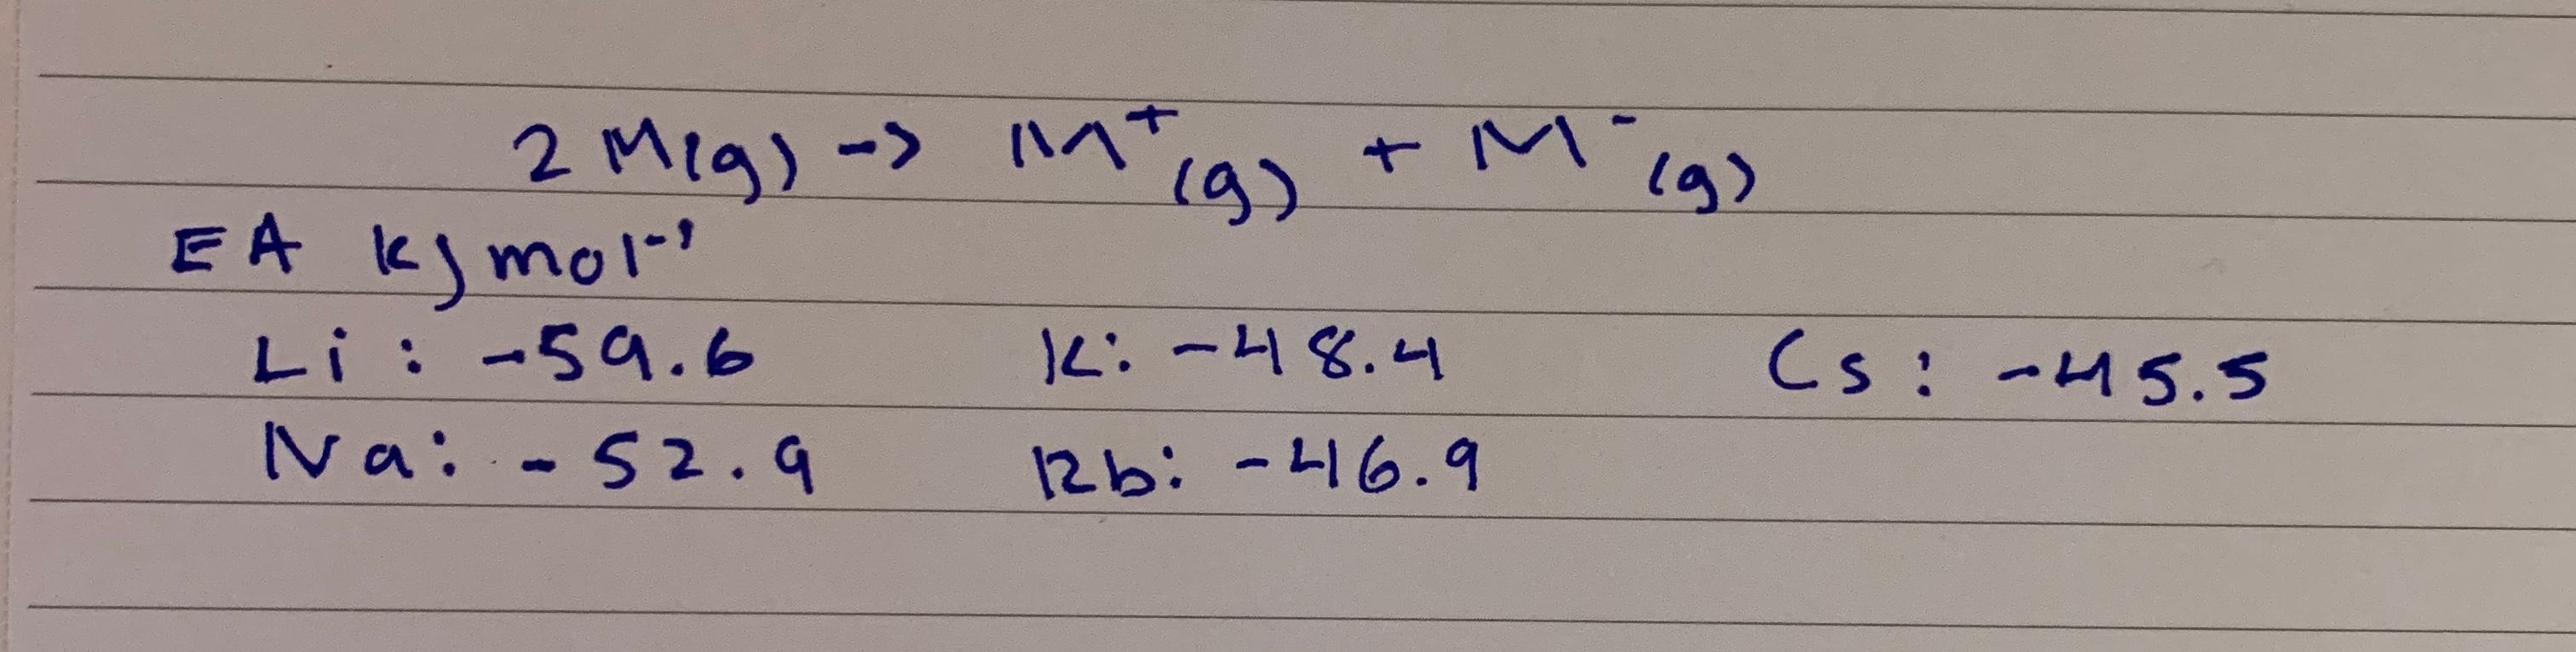 2 M(g) -> M⁺(g) + M⁻(g)
EA kJ mol⁻¹
Li : -59.6 K: -48.4 Cs : -45.5
Na: -52.9 Rb: -46.9